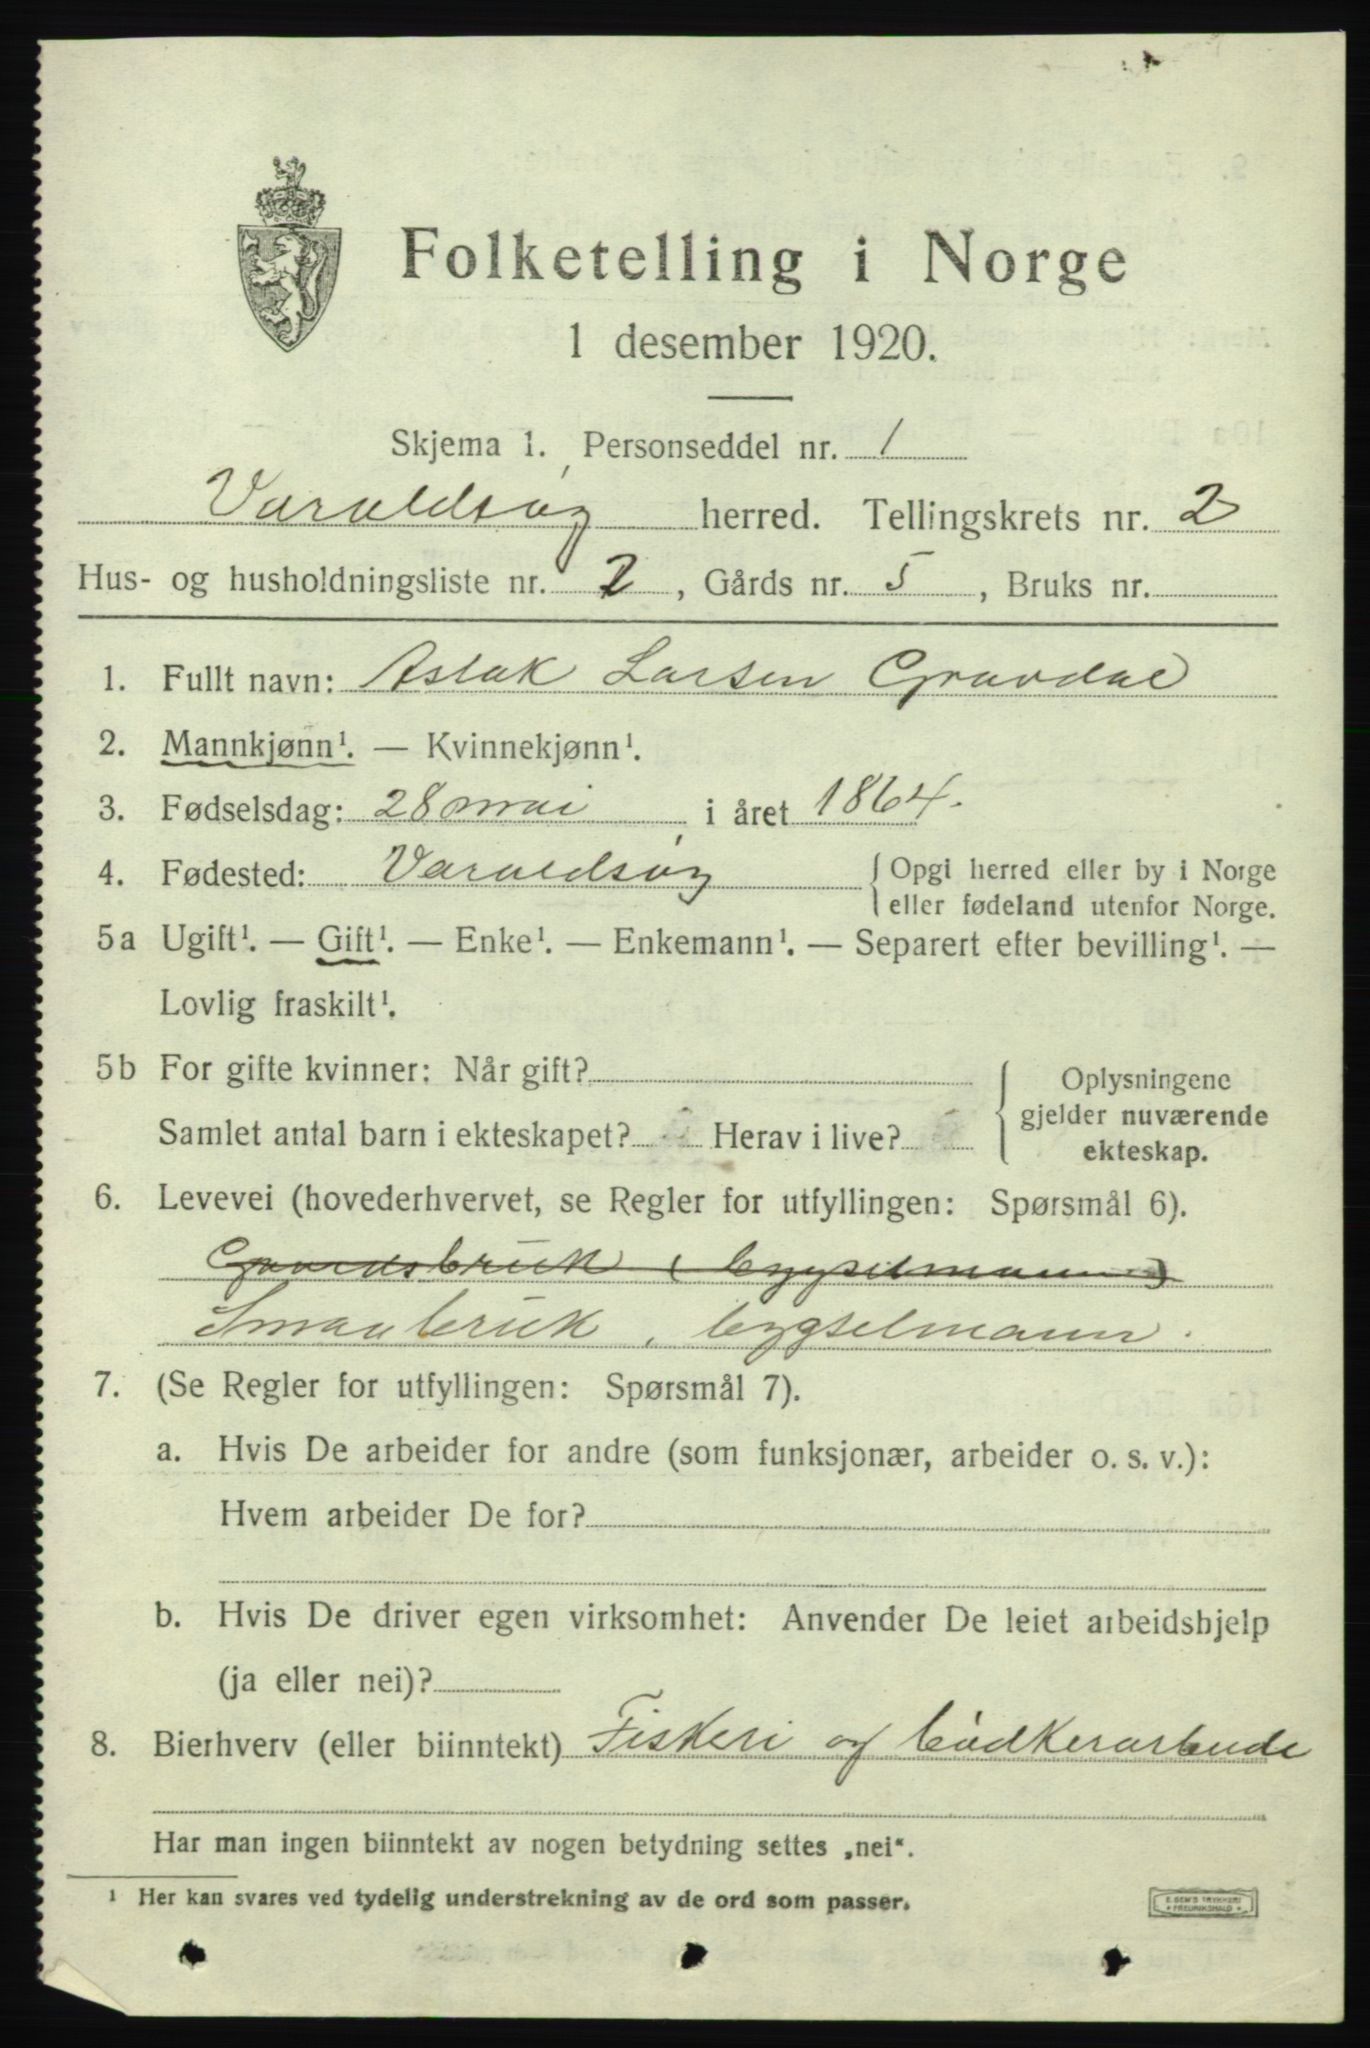 Folketelling i Norge
1 desember 1920.
Skjema 1. Personseddel nr. 1
Varaldsøy herred. Tellingskrets nr. 2
Hus- og husholdningsliste nr. 2, Gårds nr. 5, Bruks nr.
1. Fullt navn: Aslak Larsen Gravdal
2. Mannkjønn¹. — Kvinnekjønn¹.
3. Fødselsdag: 28 mai i året 1864.
4. Fødested: Varaldsøy { Opgi herred eller by i Norge
eller fødeland utenfor Norge.
5a Ugift¹. — Gift¹. — Enke¹. — Enkemann¹. — Separert efter bevilling¹. —
Lovlig fraskilt¹.
5b For gifte kvinner: Når gift?
Samlet antal barn i ekteskapet? Herav i live?
Oplysningene
gjelder nuværende
ekteskap.
6. Levevei (hovederhvervet, se Regler for utfyllingen: Spørsmål 6).
Gaardsbruk (bygselmann)
Smaabruk, bygselmann.
7. (Se Regler for utfyllingen: Spørsmål 7).
a. Hvis De arbeider for andre (som funksjonær, arbeider o. s. v.):
Hvem arbeider De for?
b. Hvis De driver egen virksomhet: Anvender De leiet arbeidshjelp
(ja eller nei)?
8. Bierhverv (eller biinntekt) Fiskeri og bødkerarbeide
Har man ingen biinntekt av nogen betydning settes „nei“.
¹ Her kan svares ved tydelig understrekning av de ord som passer.
E. SEM'S TRYKKERI
FREDRIKSHALD